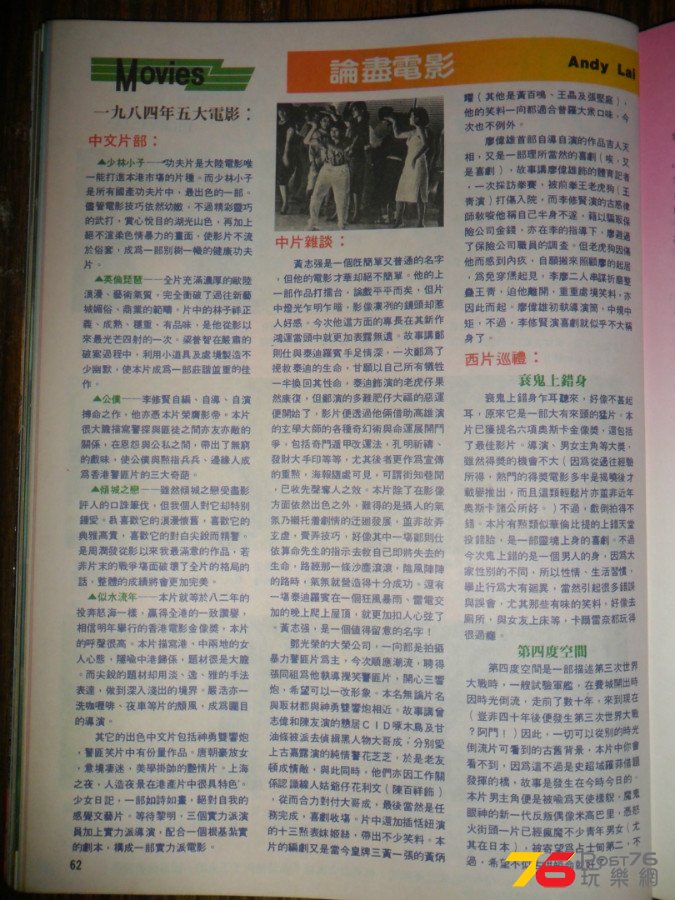 Movies
論盡電影
Andy Lai
一九八四年五大電影：
中文片部：
▲少林小子──功夫片是大陸電影唯
一能打進本港市場的片種。而少林小子
是所有國產功夫片中，最出色的一部。
儘管電影技巧依然幼嫩，不過精彩靈巧
的武打，賞心悅目的湖光山色，再加上
絕不渲染色情暴力的畫面，使影片不流
於俗套，成爲一部別樹一幟的健康功夫
片。
▲英倫琵琶──全片充滿濃厚的歐陸
浪漫、藝術氣質，完全衝破了過往新藝
城媚俗、商業的範疇，片中的林子祥正
義、成熟、穩重、有品味，是他從影以
來最光芒四射的一次。梁普智在嚴肅的
破案過程中，利用小道具及處境製造不
少幽默，使本片成爲一部莊諧並重的佳
作。
▲公僕──李修賢自編、自導、自演
搏命之作，他亦憑本片榮膺影帝。本片
很大膽描寫警探與匪徒之間亦友亦敵的
關係，在恩怨與公私之間，帶出了無窮
的戲味，使公僕與㷫指兵兵、邊緣人成
爲香港警匪片的三大奇葩。
▲傾城之戀──雖然傾城之戀受盡影
評人的口誅筆伐，但我個人對它卻特別
鍾愛。我喜歡它的浪漫懷舊，喜歡它的
典雅高貴，喜歡它的對白尖銳而精警。
是周潤發從影以來我最滿意的作品，若
非片末的戰爭場面破壞了全片的格局的
話，整體的成績將會更加完美。
▲似水流年──本片就等於八二年的
投奔怒海一樣，贏得全港的一致讚譽，
相信明年舉行的香港電影金像獎，本片
的呼聲很高。本片描寫港、中兩地的女
人心態，隱喩中港歸係，題材很是大膽
。而尖銳的題材却用淡、逸、雅的手法
表達，做到深入淺出的境界。嚴浩亦一
洗咖喱啡、夜車等片的頹風，成爲矚目
的導演。
其它的出色中文片包括神勇雙響炮
，警匪笑片中有份量作品。唐朝豪放女
，意境凄迷，美學掛帥的艷情片。上海
之夜，人造夜景在港產中很具特色。
少女日記，一部如詩如畫，絕對自我的
感覺文藝片。等待黎明，三個實力派演
員加上實力派導演，配合一個根基紮實
的劇本，構成一部實力派電影。
中片雜談：
黃志强是一個旣簡單又普通的名字
，但他的電影才華却絕不簡單。他的上
一部作品打擂台，論戲平平而矣，但片
中燈光乍明乍暗，影像凜冽的鏡頭却惹
人好感。今次他這方面的專長在其新作
鴻運當頭中就更加表露無遺。故事講鄺
則仕與泰迪羅賓手足情深，一次鄺爲了
拯救泰迪的生命，甘願以自己所有犧牲
一半換回其性命，泰迪飾演的老虎仔果
然康復，但鄺演的多難肥仔大福的惡運
便開始了，影片便透過他倆借助高雄演
的玄學大師的各種奇幻術與命運展開鬥
爭，包括奇門遁甲改運法，孔明祈禱、
發財大手印等等，尤其後者更作爲宣傳
的重㸃，海報隨處可見，可謂街知巷聞
，已收先聲奪人之效。本片除了在影像
方面依然出色之外，難得的是攝人的氣
氛乃襯托着劇情的迂廻發展，並非故弄
玄虛，賣弄技巧，好像其中一場鄺則仕
依算命先生的指示去救自己即將失去的
生命，路經那一條沙塵滾滾，陰風陣陣
的路時，氣氛就營造得十分成功。還有
一場泰迪羅賓在一個狂風暴雨、雷電交
加的晚上爬上屋頂，就更加扣人心弦了
。黃志强，是一個値得留意的名字！
鄭光榮的大榮公司，一向都是拍攝
暴力警匪片爲主，今次順應潮流，聘得
張同祖爲他執導攪笑警匪片，開心三響
炮，希望可以一改形象。本名無論片名
與取材都與神勇雙響炮相近。故事講曾
志偉和陳友演的戇居ＣＩＤ啄木鳥及甘
油條被派去偵緝黑人物大哥成；分別愛
上古嘉露演的純情警花芝芝，於是老友
頓成情敵，與此同時，他們亦因工作關
係認識綫人姑爺仔花利文（陳百祥飾）
，從而合力對付大哥成，最後當然是任
務完成，喜劇收場。片中還加插恬妞演
的十三㸃表妹姬絲，帶出不少笑料。本
片的編劇又是當今皇牌三黃一張的黃炳
耀（其他是黃百鳴、王晶及張堅庭），
他的笑料一向都適合普羅大衆口味，今
次也不例外。
廖偉雄首部自導自演的作品吉人天
相，又是一部理所當然的喜劇（唉，又
是喜劇），故事講廖偉雄飾的體育記者
，一次採訪拳賽，被前拳王老虎狗（王
青演）打傷入院，而李修賢演的古惑律
師敎唆他稱自己半身不遂，藉以騙取保
險公司金錢，亦在李的指導下，廖避過
了保險公司職員的調查。但老虎狗因傷
他而感到內疚，自願搬來照顧廖的起居
，爲免穿煲起見，李廖二人串謀折磨整
蠱王青，迫他離開，重重處境笑料，亦
因此而起。廖偉雄初執導演筒，中規中
矩，不過，李修賢演喜劇就似乎不大稱
身了。
西片巡禮：
衰鬼上錯身
衰鬼上錯身乍耳聽來，好像不甚起
耳，原來它是一部大有來頭的猛片。本
片已獲提名六項奧斯卡金像獎，還包括
了最佳影片、導演、男女主角等大獎，
雖然得獎的機會不大（因爲從過往經驗
所得，熱門的得獎電影多半是揭曉後才
載譽推出，而且這類輕鬆片亦並非近年
奧斯卡諸公所好。）不過，戲倒拍得不
錯。本片有㸃類似華倫比提的上錯天堂
投錯胎，是一部靈魂上身的喜劇。不過
今次鬼上錯的是一個男人的身，因爲大
家性別的不同，所以性情、生活習慣、
擧止行爲大有廻異，當然引起很多錯誤
與誤會，尤其那些有味的笑料，好像去
厠所，與女友上床等，卡爾雷奈都玩得
很過癮。
第四度空間
第四度空間是一部描述第三次世界
大戰時，一艘試驗軍艦，在費城開出時
因時光倒流，走前了數十年，來到現在
（豈非四十年後便發生第三次世界大戰
？阿門！）因此，一切可以從別的時光
倒流片可看到的古舊背景，本片中你會
看不到，因爲這不過是史超域羅菲借題
發揮的橋，故事是發生在今時今日的。
本片男主角便是被喻爲天使樣貌，魔鬼
眼神的新一代反叛偶像米高巴里，憑怒
火街頭一片已經瘋魔不少青年男女（尤
其在日本），被寄望爲占士甸第二，不
過，希望不似占
62
76
POST76
玩樂網